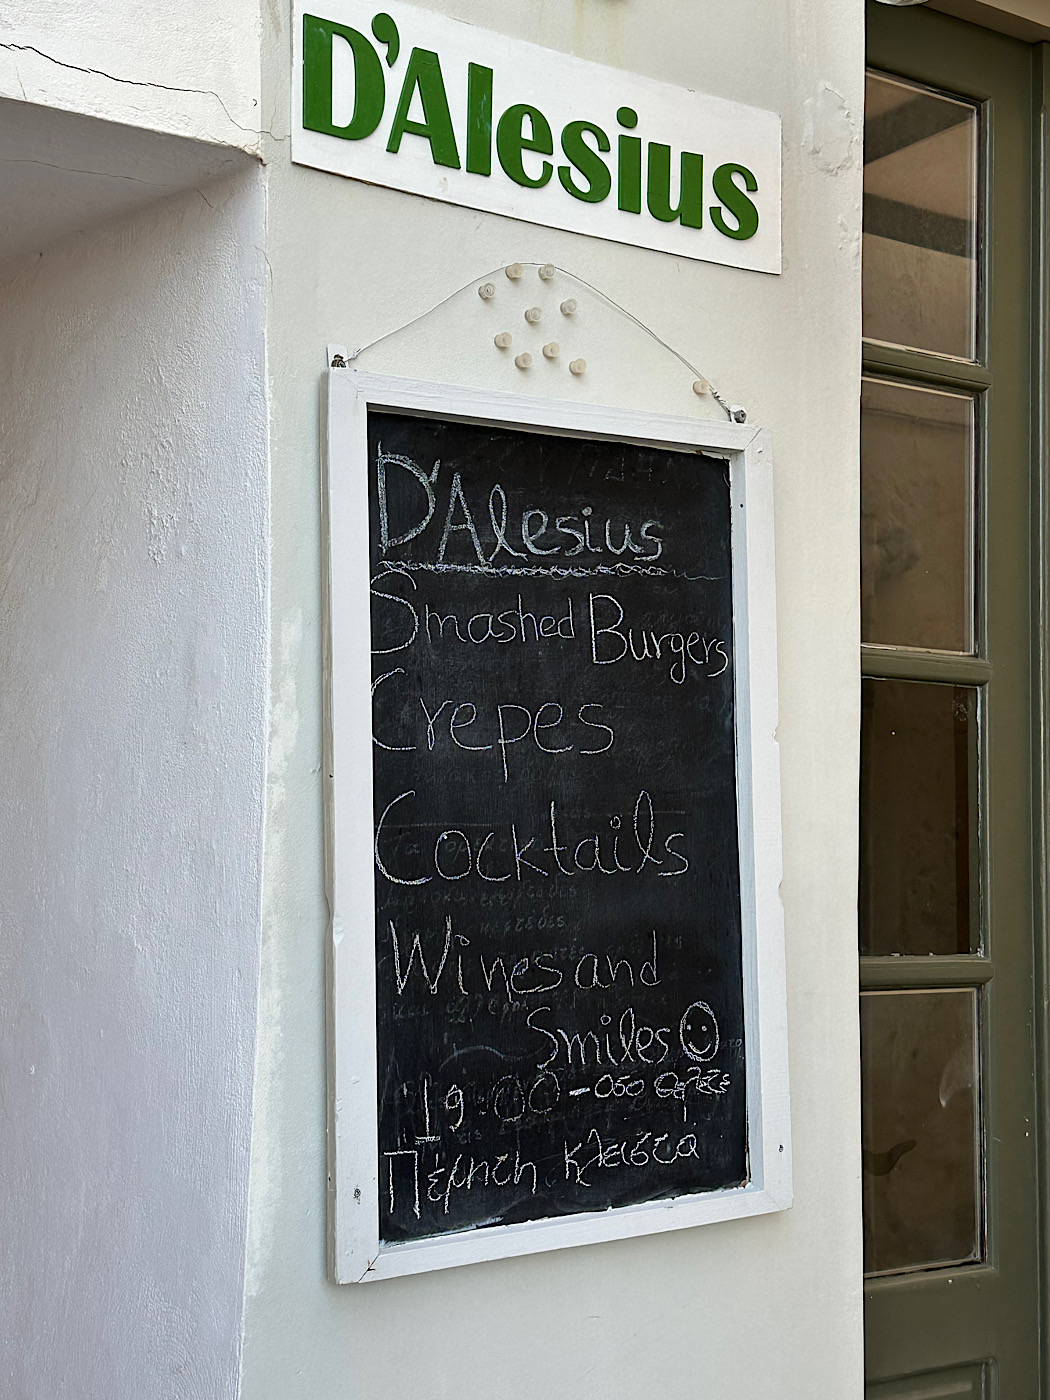 D'Alesius
D'Alesius
Smashed Burgers
Crepes
Cocktails
Wines and
Smiles
19:00 - όσο αντέξε
Πέμπτη κλειστά